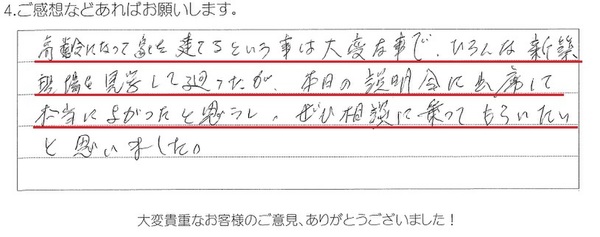 4.ご感想などあればお願いします。
高齢になって家を建てるという事は大変な事で、いろんな新築
現場を見学して廻ったが、本日の説明会に出席して
本当によかったと思うし、ぜひ相談に乗ってもらいたい
と思いました。
大変貴重なお客様のご意見、ありがとうございました！